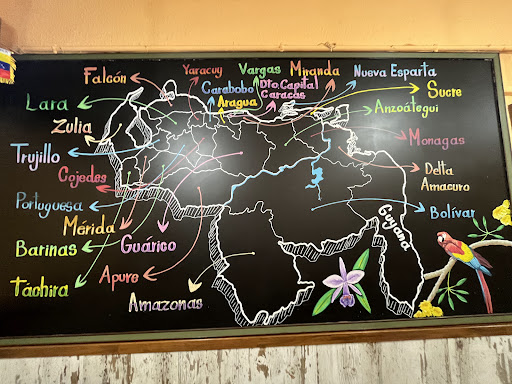 Falcón
Yaracuy
Vargas
Miranda
Nueva Esparta
Lara
Carabobo
Dto. Capital
Caracas
Sucre
Aragua
Anzoátegui
Zulia
Monagas
Trujillo
Cojedes
Delta
Amacuro
Portuguesa
Bolívar
Mérida
Guyana
Barinas
Guárico
Táchira
Apure
Amazonas